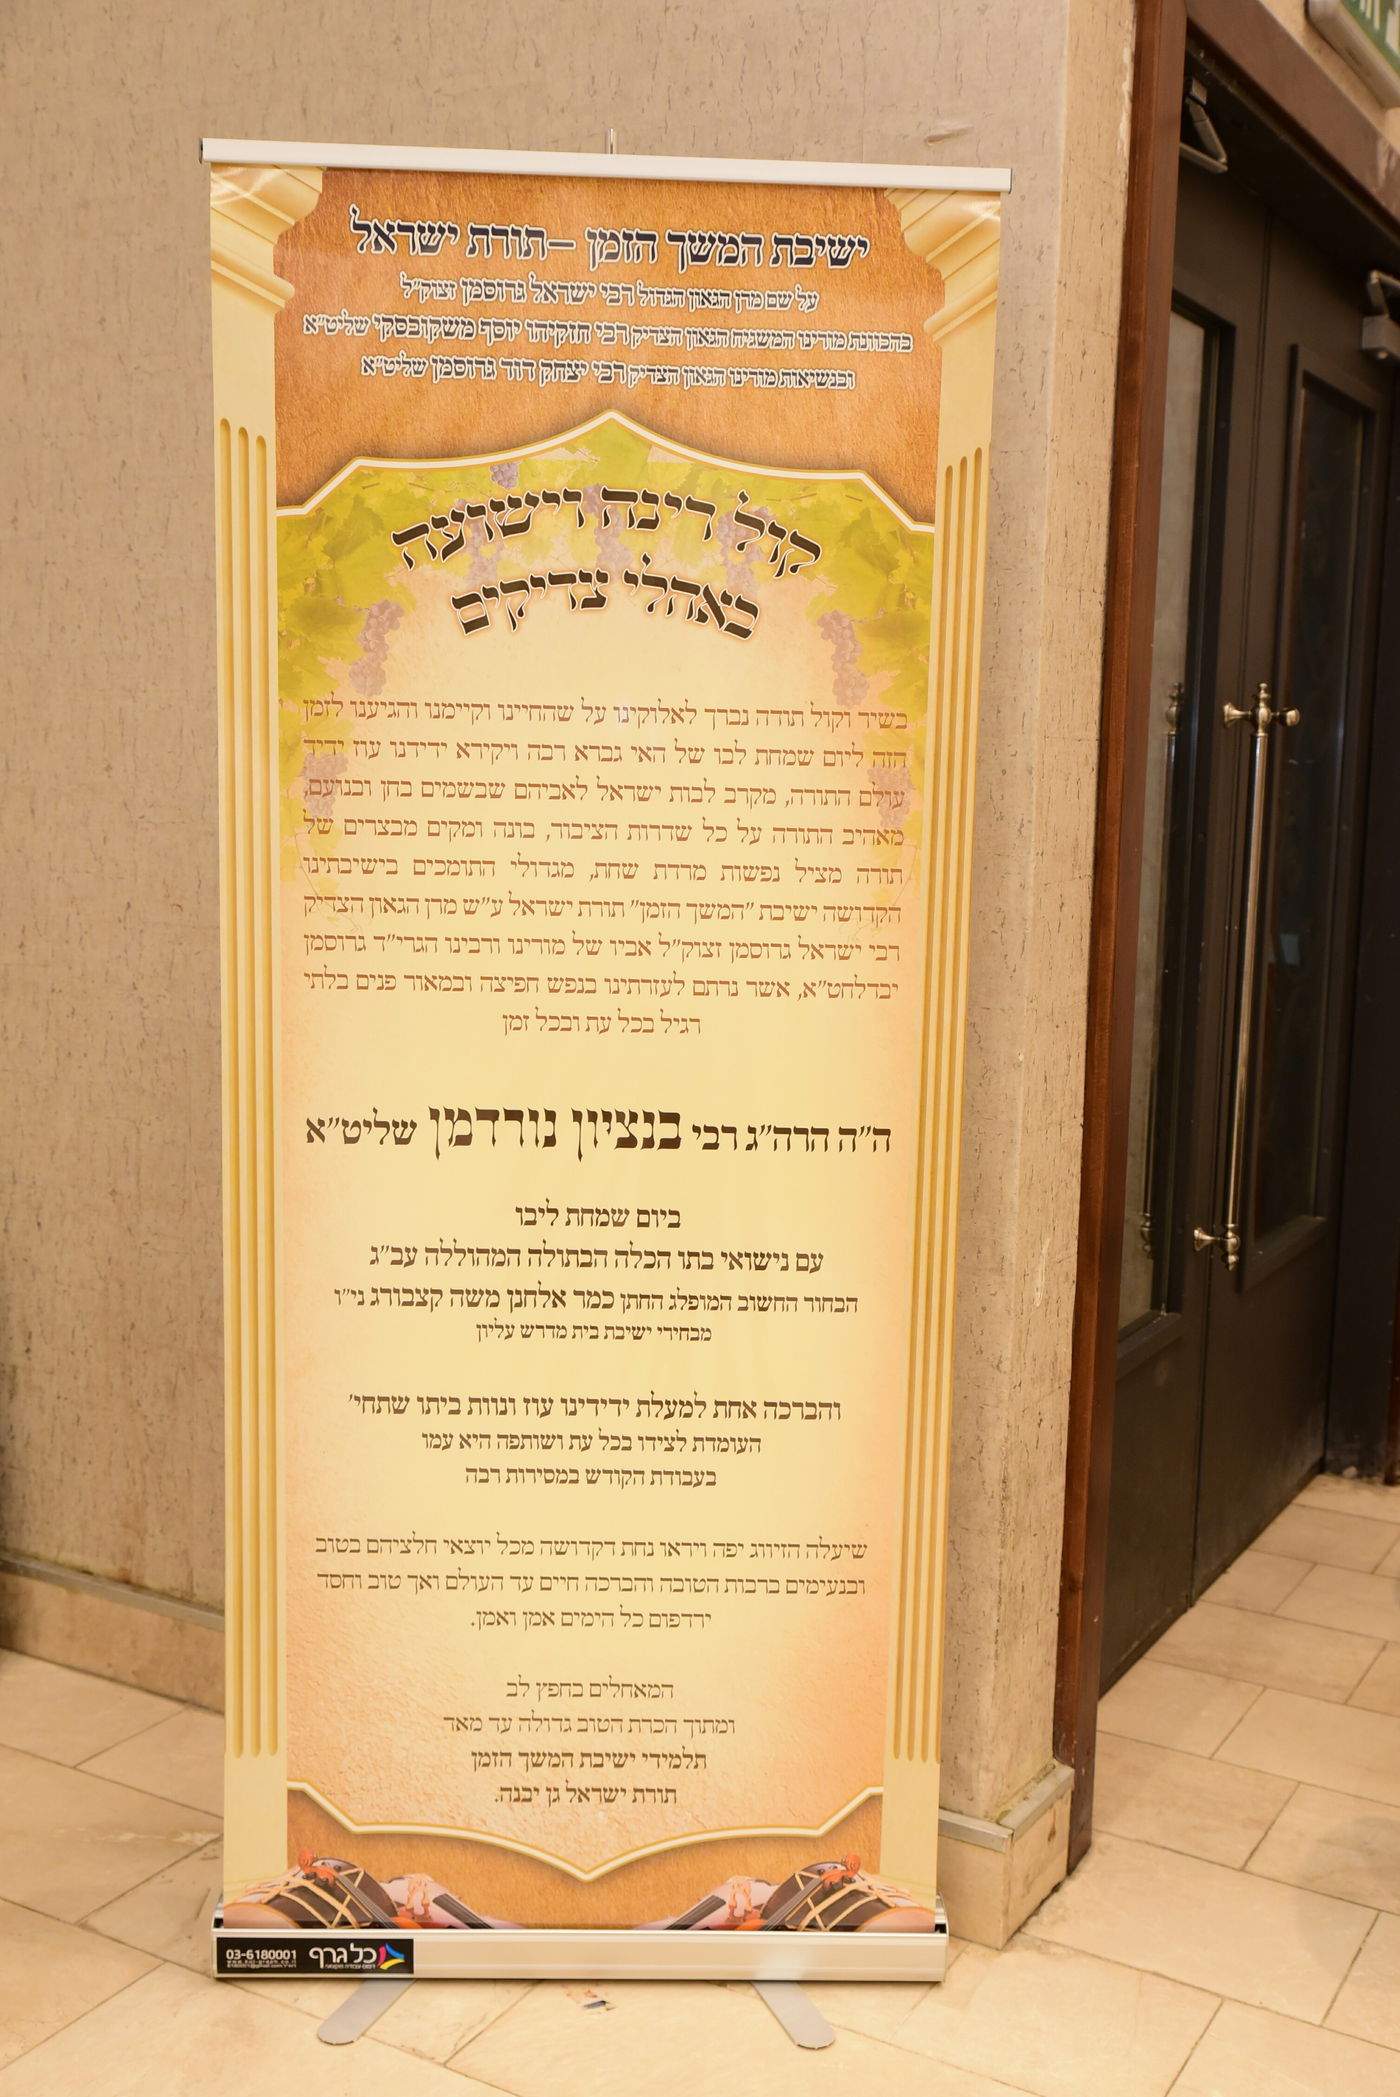 ישיבת המשך הזמן – תורת ישראל
על שם מרן הגאון הגדול רבי ישראל גרוסמן זצוק״ל
בהכוונת מורינו המשגיח הגאון הצדיק רבי חזקיהו יוסף משקובסקי שליט״א
ובנשיאות מורינו הגאון הצדיק רבי יצחק דוד גרוסמן שליט״א
קול רינה וישועה
באהלי צדיקים
בשיר וקול תודה נברך לאלוקינו על שהחיינו וקיימנו והגיענו לזמן
הזה ליום שמחת לבו של האי גברא רבה ויקירא ידידנו עוז ידיד
עולם התורה, מקרב לבות ישראל לאביהם שבשמים בחן ובנועם,
מאהיב התורה על כל שדרות הציבור, בונה ומקים מבצרים של
תורה מציל נפשות מרדת שחת, מגדולי התומכים בישיבתינו
הקדושה ישיבת ״המשך הזמן״ תורת ישראל ע״ש מרן הגאון הצדיק
רבי ישראל גרוסמן זצוק״ל אביו של מורינו ורבינו הגרי״ד גרוסמן
יבדלחט״א, אשר נרתם לעזרתינו בנפש חפיצה ובמאור פנים בלתי
רגיל בכל עת ובכל זמן
ה״ה הרה״ג רבי בנציון נורדמן שליט״א
ביום שמחת ליבו
עם נישואי בתו הכלה הבתולה המהוללה עב״ג
הבחור החשוב המופלג החתן כמר אלחנן משה קצבורג ני״ו
מבחירי ישיבת בית מדרש עליון
והברכה אחת למעלת ידידינו עוז ונוות ביתו שתחי׳
העומדת לצידו בכל עת ושותפה היא עמו
בעבודת הקודש במסירות רבה
שיעלה הזיווג יפה ויראו נחת דקדושה מכל יוצאי חלציהם בטוב
ובנעימים ברבות הטובה והברכה חיים עד העולם ואך טוב וחסד
ירדפום כל הימים אמן ואמן.
המאחלים בחפץ לב
ומתוך הכרת הטוב גדולה עד מאד
תלמידי ישיבת המשך הזמן
תורת ישראל גן יבנה.
כל גרף 03-6180001